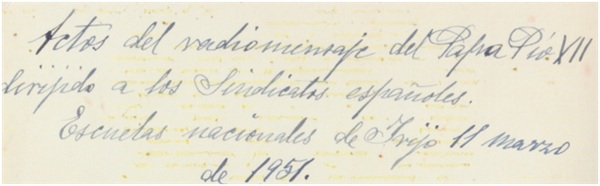 Actos del radiomensaje del Papa Pío XII
dirijido a los Sindicatos españoles.
Escuelas nacionales de Frijo 11 marzo
de 1951.